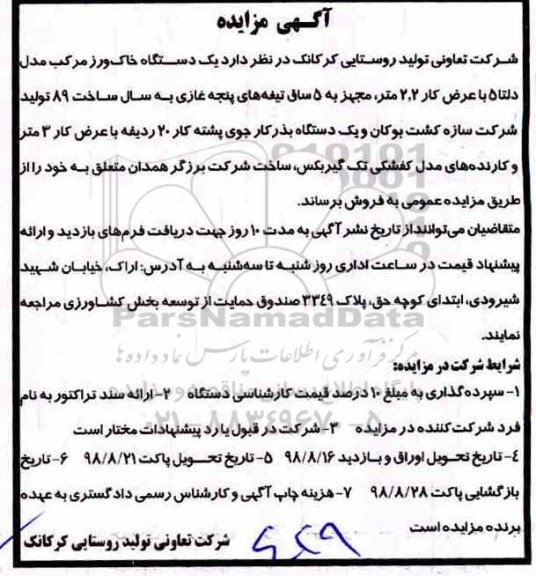 آگهی مزایده
شرکت تعاونی تولید روستایی کرکانک در نظر دارد یک دستگاه خاک‌ورز مرکب مدل
دلتا۵ با عرض کار ۲٫۲ متر، مجهز به ۵ ساق تیغه‌های پنجه غازی به سال ساخت ۸۹ تولید
شرکت سازه کشت بوکان و یک دستگاه بذرکار جوی پشته کار ۲۰ ردیفه با عرض کار ۳ متر
و کارنده‌های مدل کفشکی تک گیربکس، ساخت شرکت برزگر همدان متعلق به خود را از
طریق مزایده عمومی به فروش برساند.
متقاضیان می‌توانند از تاریخ نشر آگهی به مدت ۱۰ روز جهت دریافت فرم‌های بازدید و ارائه
پیشنهاد قیمت در ساعت اداری روز شنبه تا سه‌شنبه به آدرس: اراک، خیابان شهید
شیرودی، ابتدای کوچه حق، پلاک ۳۳۴۹ صندوق حمایت از توسعه بخش کشاورزی مراجعه
نمایند.
ParsNamadData
مرکز فرآوری اطلاعات پارس نماد داده‌ها
شرایط شرکت در مزایده:
۱- سپرده‌گذاری به مبلغ ۱۰ درصد قیمت کارشناسی دستگاه ۲- ارائه سند تراکتور به نام
فرد شرکت کننده در مزایده ۳- شرکت در قبول یا رد پیشنهادات مختار است
۰۲۱-۸۸۳۴۹۶۷۰-۵
۴- تاریخ تحویل اوراق و بازدید ۹۸/۸/۱۶ ۵- تاریخ تحویل پاکت ۹۸/۸/۲۱ ۶- تاریخ
بازگشایی پاکت ۹۸/۸/۲۸ ۷- هزینه چاپ آگهی و کارشناس رسمی دادگستری به عهده
برنده مزایده است
شرکت تعاونی تولید روستایی کرکانک